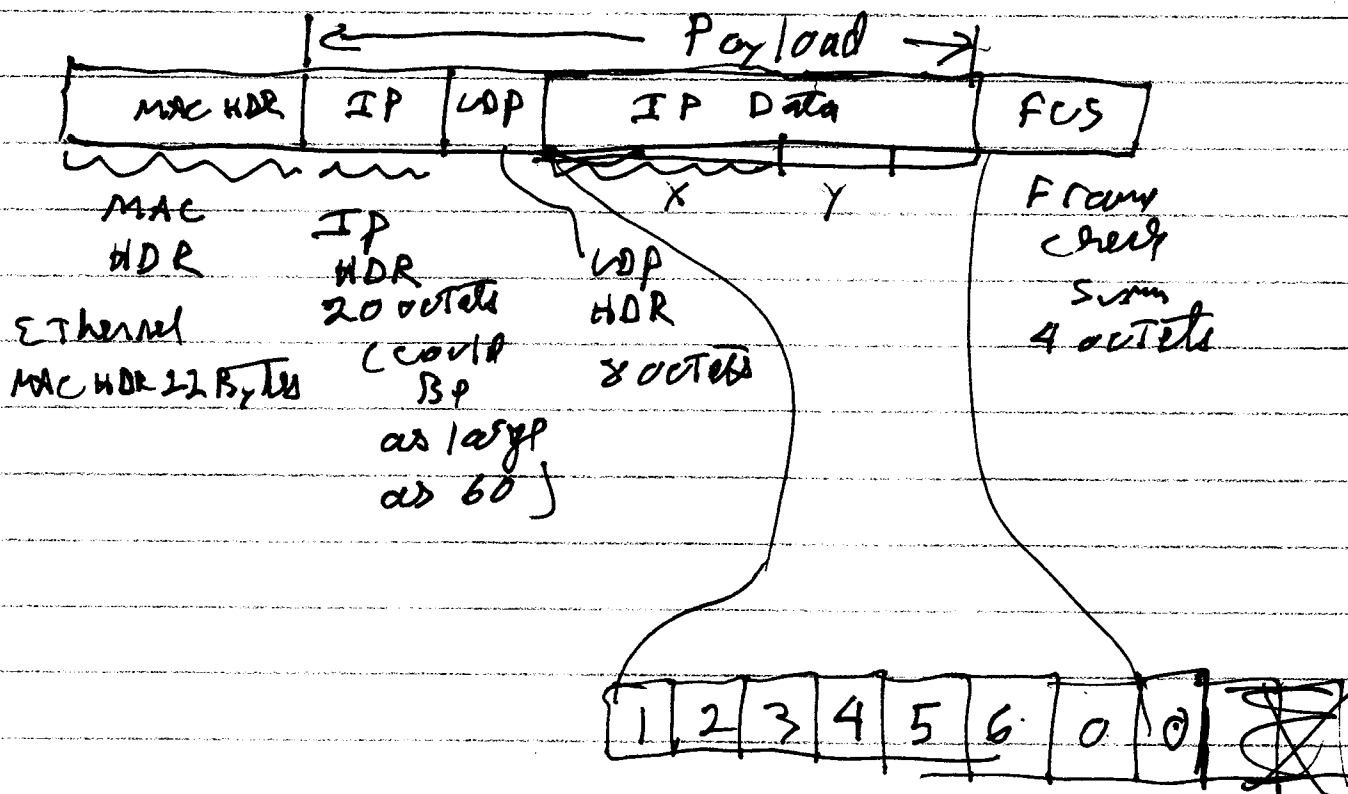 Payload
MAC HDR IP UDP IP Data FCS
X Y
MAC
HDR
Ethernet
MAC HDR 22 Bytes
IP
HDR
20 octets
(could
Be
as large
as 60)
UDP
HDR
8 octets
Frame
check
Sum
4 octets
1 2 3 4 5 6 0 0